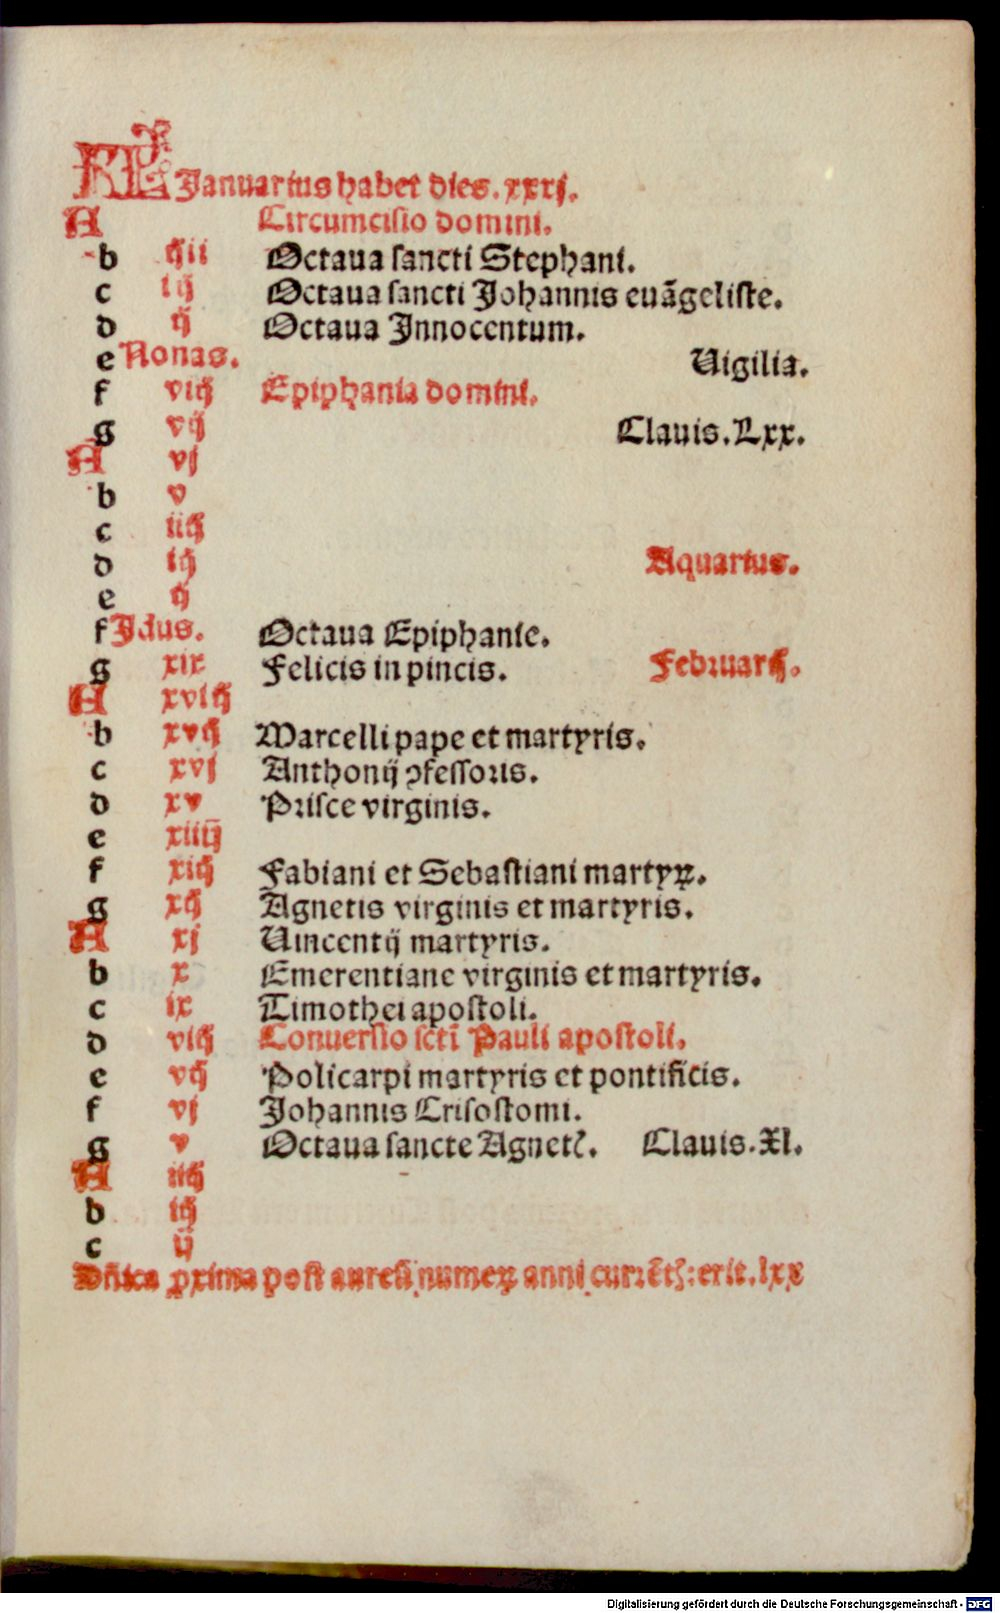 KL Januarius habet dies. xxxj.
A Circumcisio domini.
b iiij Octaua sancti Stephani.
c iij Octaua sancti Johannis euãgeliste.
d ij Octaua Innocentum.
e Nonas. Uigilia.
f viij Epiphania domini.
g vij Clauis. Lxx.
A vj
b v
c iiij
d iij Aquarius.
e ij
f Idus. Octaua Epiphanie.
g xix Felicis in pincis. Februarij.
A xviij
b xvij Marcelli pape et martyris.
c xvj Anthonij ꝯfessoris.
d xv Prisce virginis.
e xiiij
f xiij Fabiani et Sebastiani martyꝝ.
g xij Agnetis virginis et martyris.
A xj Uincentij martyris.
b x Emerentiane virginis et martyris.
c ix Timothei apostoli.
d viij Conuersio scti Pauli apostoli.
e vij Policarpi martyris et pontificis.
f vj Johannis Crisostomi.
g v Octaua sancte Agnetꝭ. Clauis. Xl.
A iiij
b iij
c ij
Dñica ꝓxima post aureũ numeꝝ anni currẽtꝭ: erit. lxx
Digitalisierung gefördert durch die Deutsche Forschungsgemeinschaft - DFG